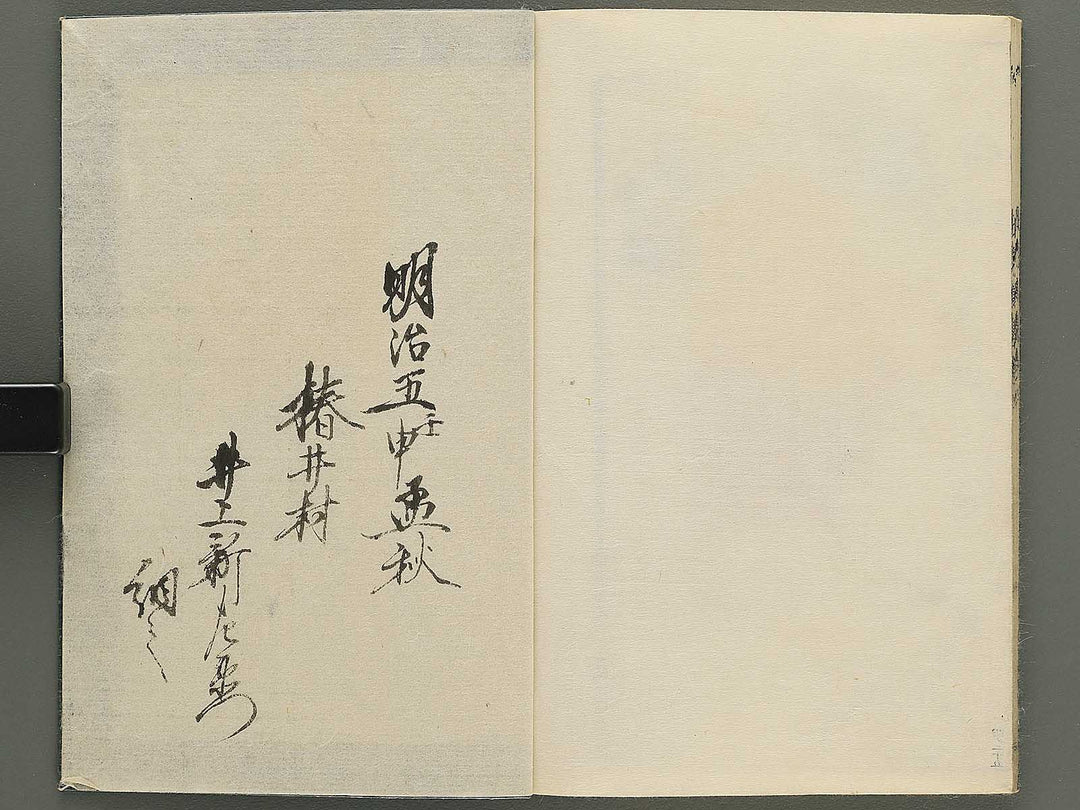 明治五壬申孟秋
椿井村
井上新左衛門
調之